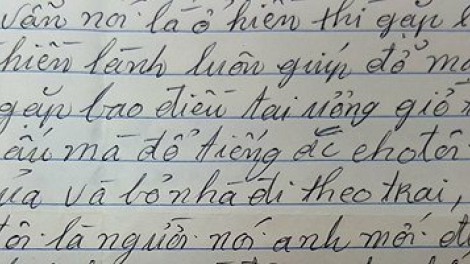 vẫn nói là ở hiền thì gặp l
hiền lành luôn giúp đỡ mo
gặp bao điều tai ương giờ
ấu mà đổ tiếng ác cho tôi
ủa và bỏ nhà đi theo trai,
tôi là người nói anh mới đ